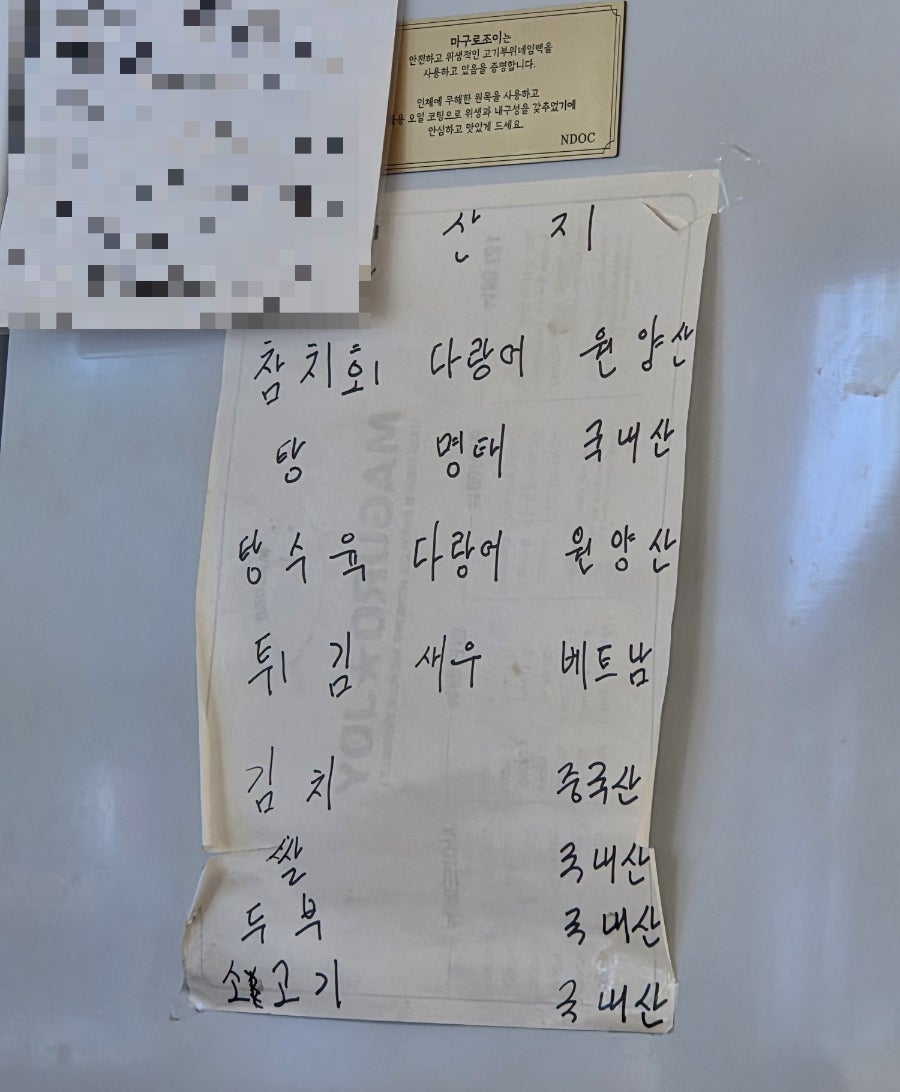 마구로조이는
안전하고 위생적인 고기부위네임택을
사용하고 있음을 증명합니다.
인체에 무해한 원목을 사용하고
용 오일 코팅으로 위생과 내구성을 갖추었기에
안심하고 맛있게 드세요.
NDOC
산 지
참치회 다랑어 원양산
탕 명태 국내산
탕수육 다랑어 원양산
튀김 새우 베트남
김치 중국산
쌀 국내산
두부 국내산
소고기 국내산
MAGURO JOY